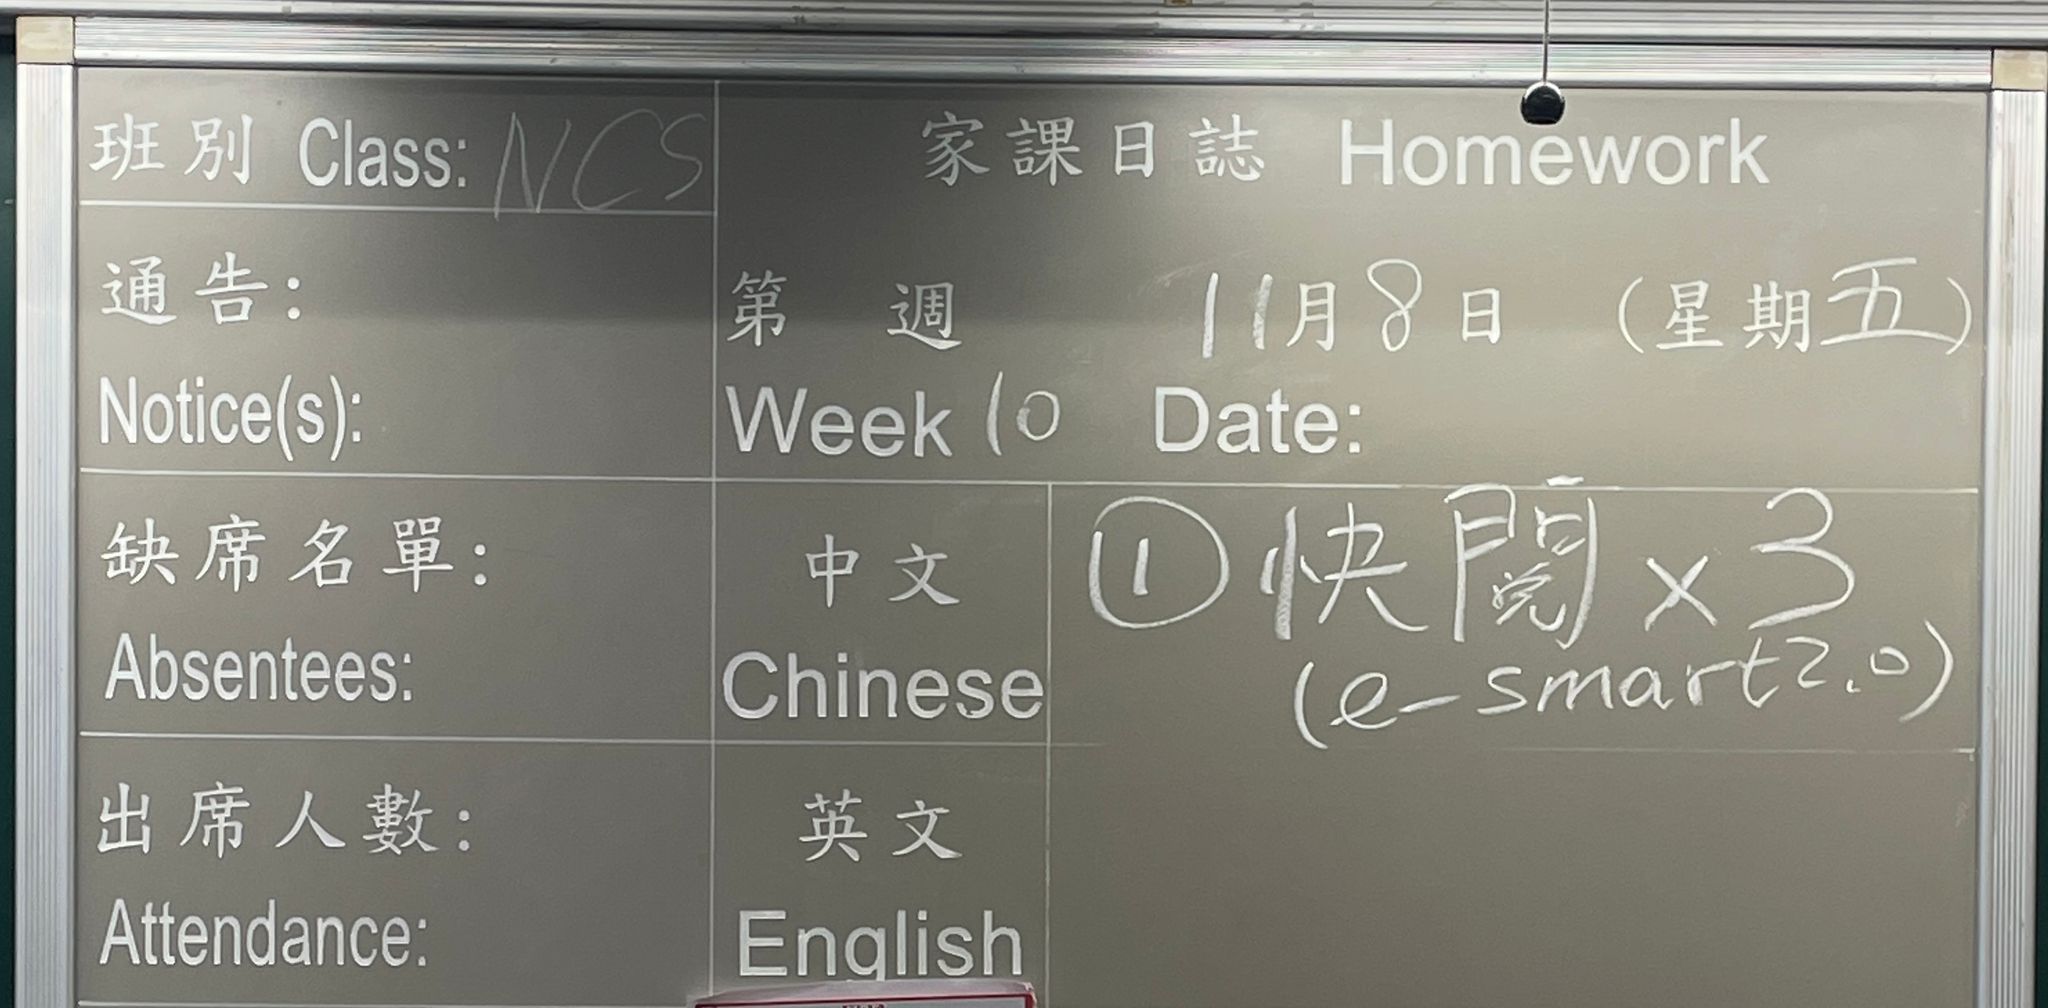 班別 Class: NCS
家課日誌 Homework
通告:
Notice(s):
第 週 11月8日 (星期五)
Week 10 Date:
缺席名單:
Absentees:
中文
Chinese
① 快閱 × 3
(e-smart2.0)
出席人數:
Attendance:
英文
English